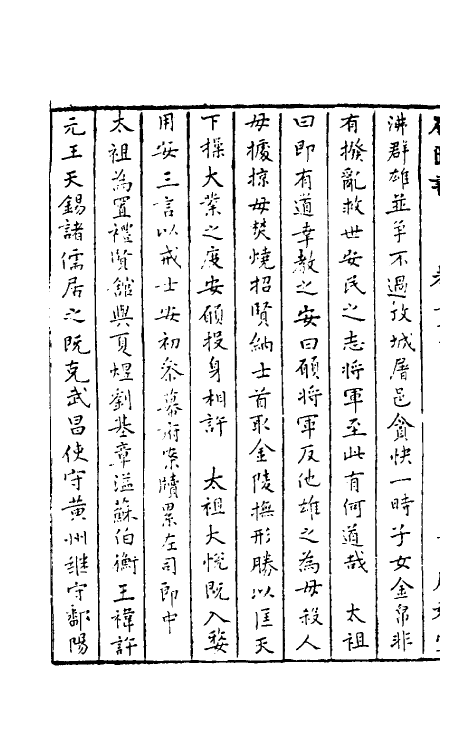 沸群雄並爭不過攻城屠邑貪快一時子女金帛非
有撥亂救世安民之志將軍至此有何道哉　太祖
曰即有道幸教之安曰願將軍反他雄之為毋殺人
毋擄掠毋焚燒招賢納士首取金陵撫形勝以匡天
下操大業之度安願投身相許　太祖大悅既入婺
用安三言以戒士安初參幕府案牘累左司郎中
太祖為置禮賢館與夏煜劉基章溢蘇伯衡王褘許
元王天錫諸儒居之既克武昌使守黃州継守鄱陽